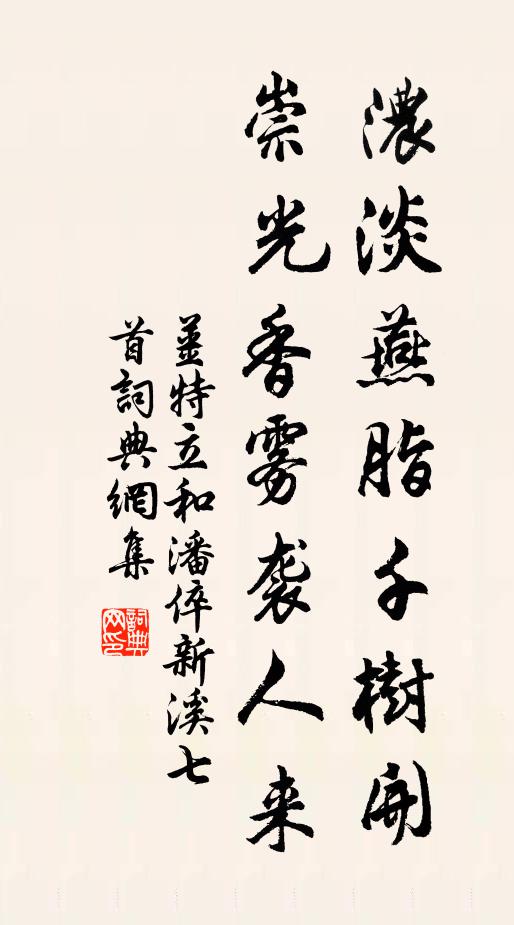 濃淡燕脂千樹開
崇光香雾袭人来
姜特立和潘倅新溪七
首詞典網集
詞典網印